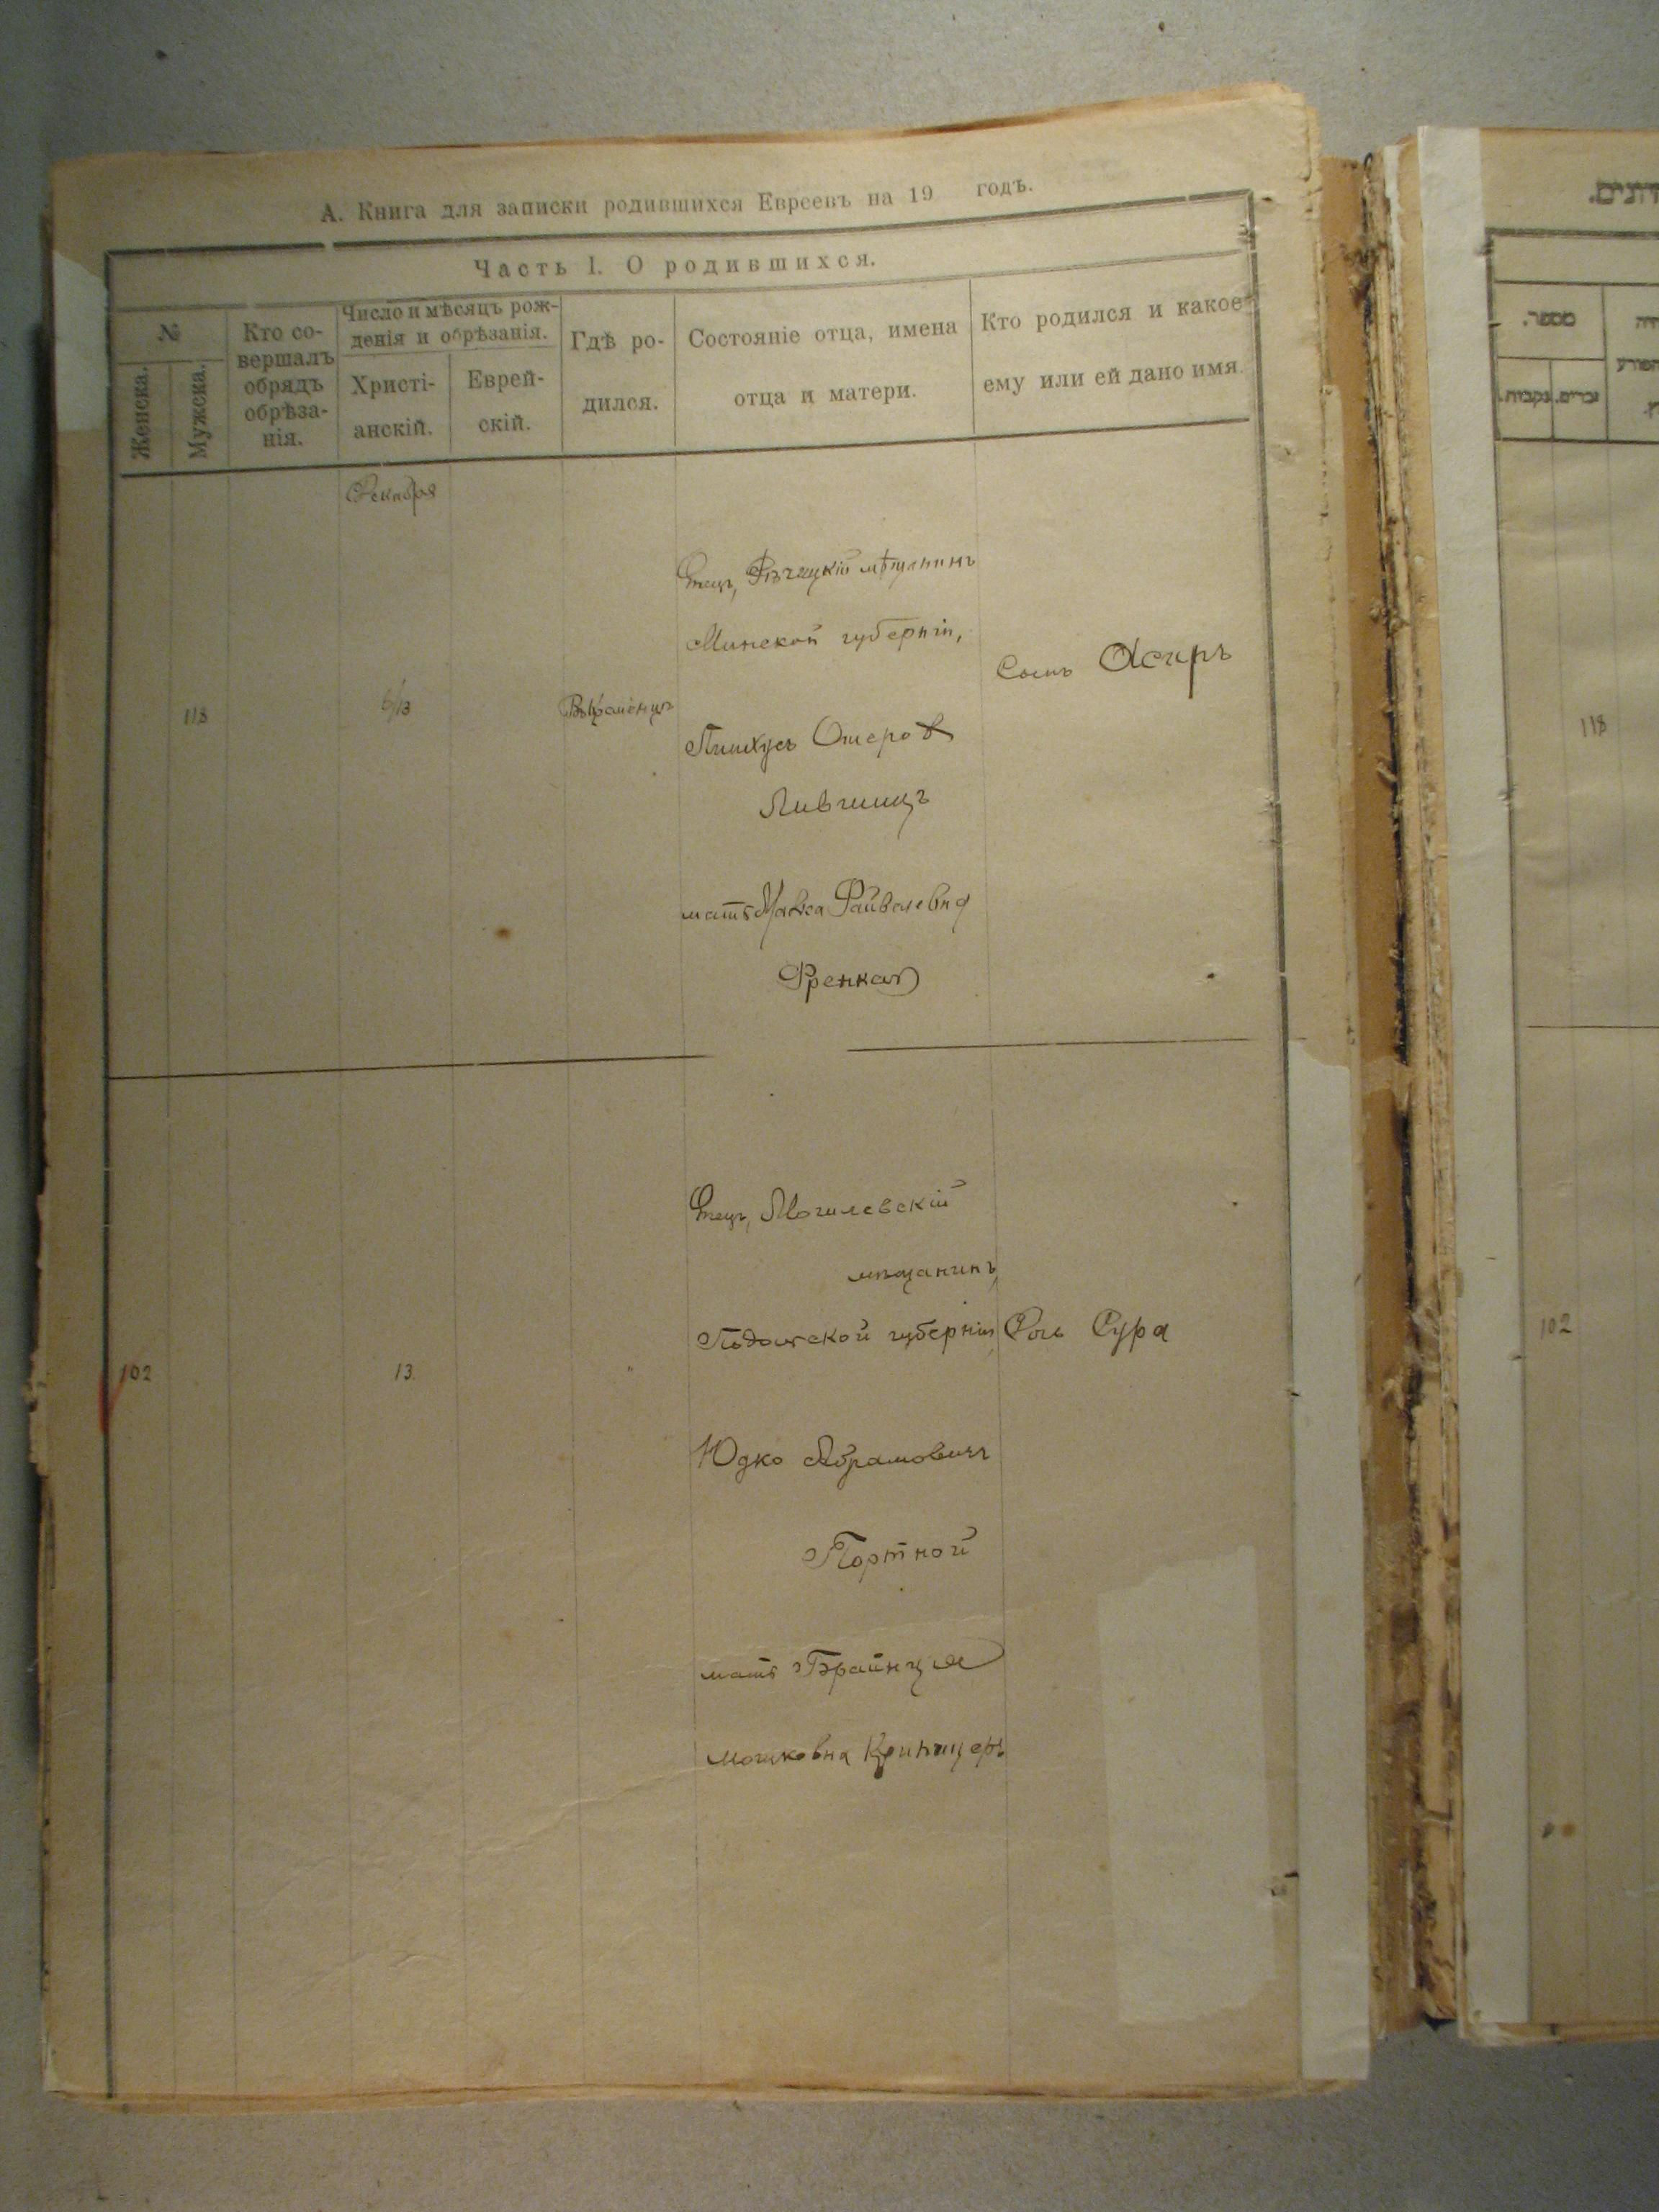 А. Книга для записки родившихся Евреевъ на 19 годъ.
Часть I. О родившихся.
№
Женска.
Мужска.
Кто со-
вершалъ
обрядъ
обрѣза-
нія.
Число и мѣсяцъ рож-
денія и обрѣзанія.
Христі-
анскій.
Еврей-
скій.
Гдѣ ро-
дился.
Состояніе отца, имена
отца и матери.
Кто родился и какое
ему или ей дано имя.
Декабря
118
6/13
Отецъ, Рѣчицкій мѣщанинъ
Минской губерніи,
Пинхусъ Ошеров
Лившицъ
мать Файвелевна
Френкел
Сынъ Асиръ
102
13.
Отецъ, Могилевскій
мѣщанинъ,
Подольской губерніи,
Юдко Абрамовичъ
Портной
мать Брайнця
Мошковна Криницеръ
Дочь Сура
דונים.
מספר.
זכרים.
נקבות.
118
102